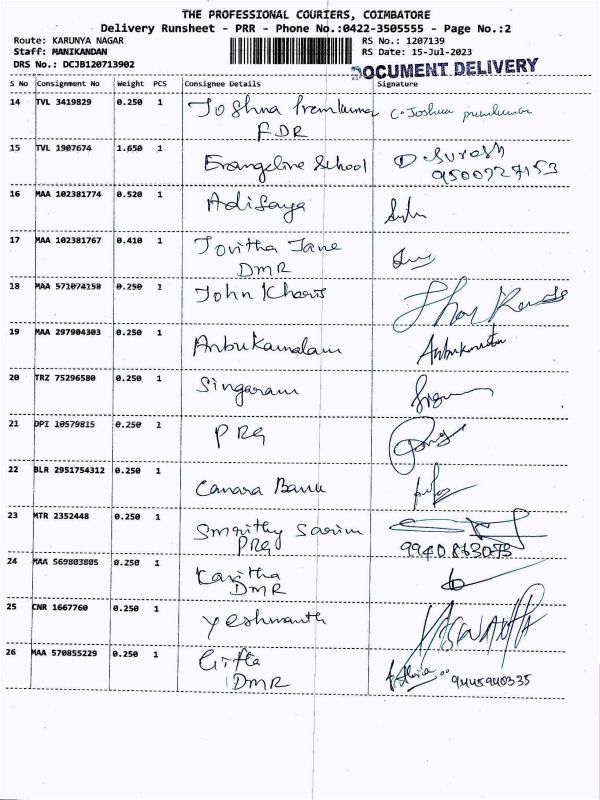 THE PROFESSIONAL COURIERS, COIMBATORE
Delivery Runsheet - PRR - Phone No.:0422-3505555 - Page No.:2
Route: KARUNYA NAGAR RS No.: 1207139
Staff: MANIKANDAN RS Date: 15-Jul-2023
DRS No.: DCJB120713902 DOCUMENT DELIVERY
S No Consignment No Weight PCS Consignee Details Signature
14 TVL 3419829 0.250 1 Joshna Premkumar C. Joshua
FDR
15 TVL 1907674 1.650 1 Evangeline School D Suresh
9500727153
16 MAA 102381774 0.520 1 Adisaya
17 MAA 102381767 0.410 1 Jovitha Jane
DMR
18 MAA 571074158 0.250 1 John Kharis
19 MAA 297904303 0.250 1 Anbukamalam
20 TRZ 75296580 0.250 1 Singaram
21 DPI 10579815 0.250 1 PRG
22 BLR 2951754312 0.250 1 Canara Bank
23 MTR 2352448 0.250 1 Smrithy Sarim
PRG 9940863073
24 MAA 569803805 0.250 1 Kavitha
DMR
25 CNR 1667760 0.250 1 Yeshwanth
26 MAA 570855229 0.250 1 Gifta
DMR 9445940335